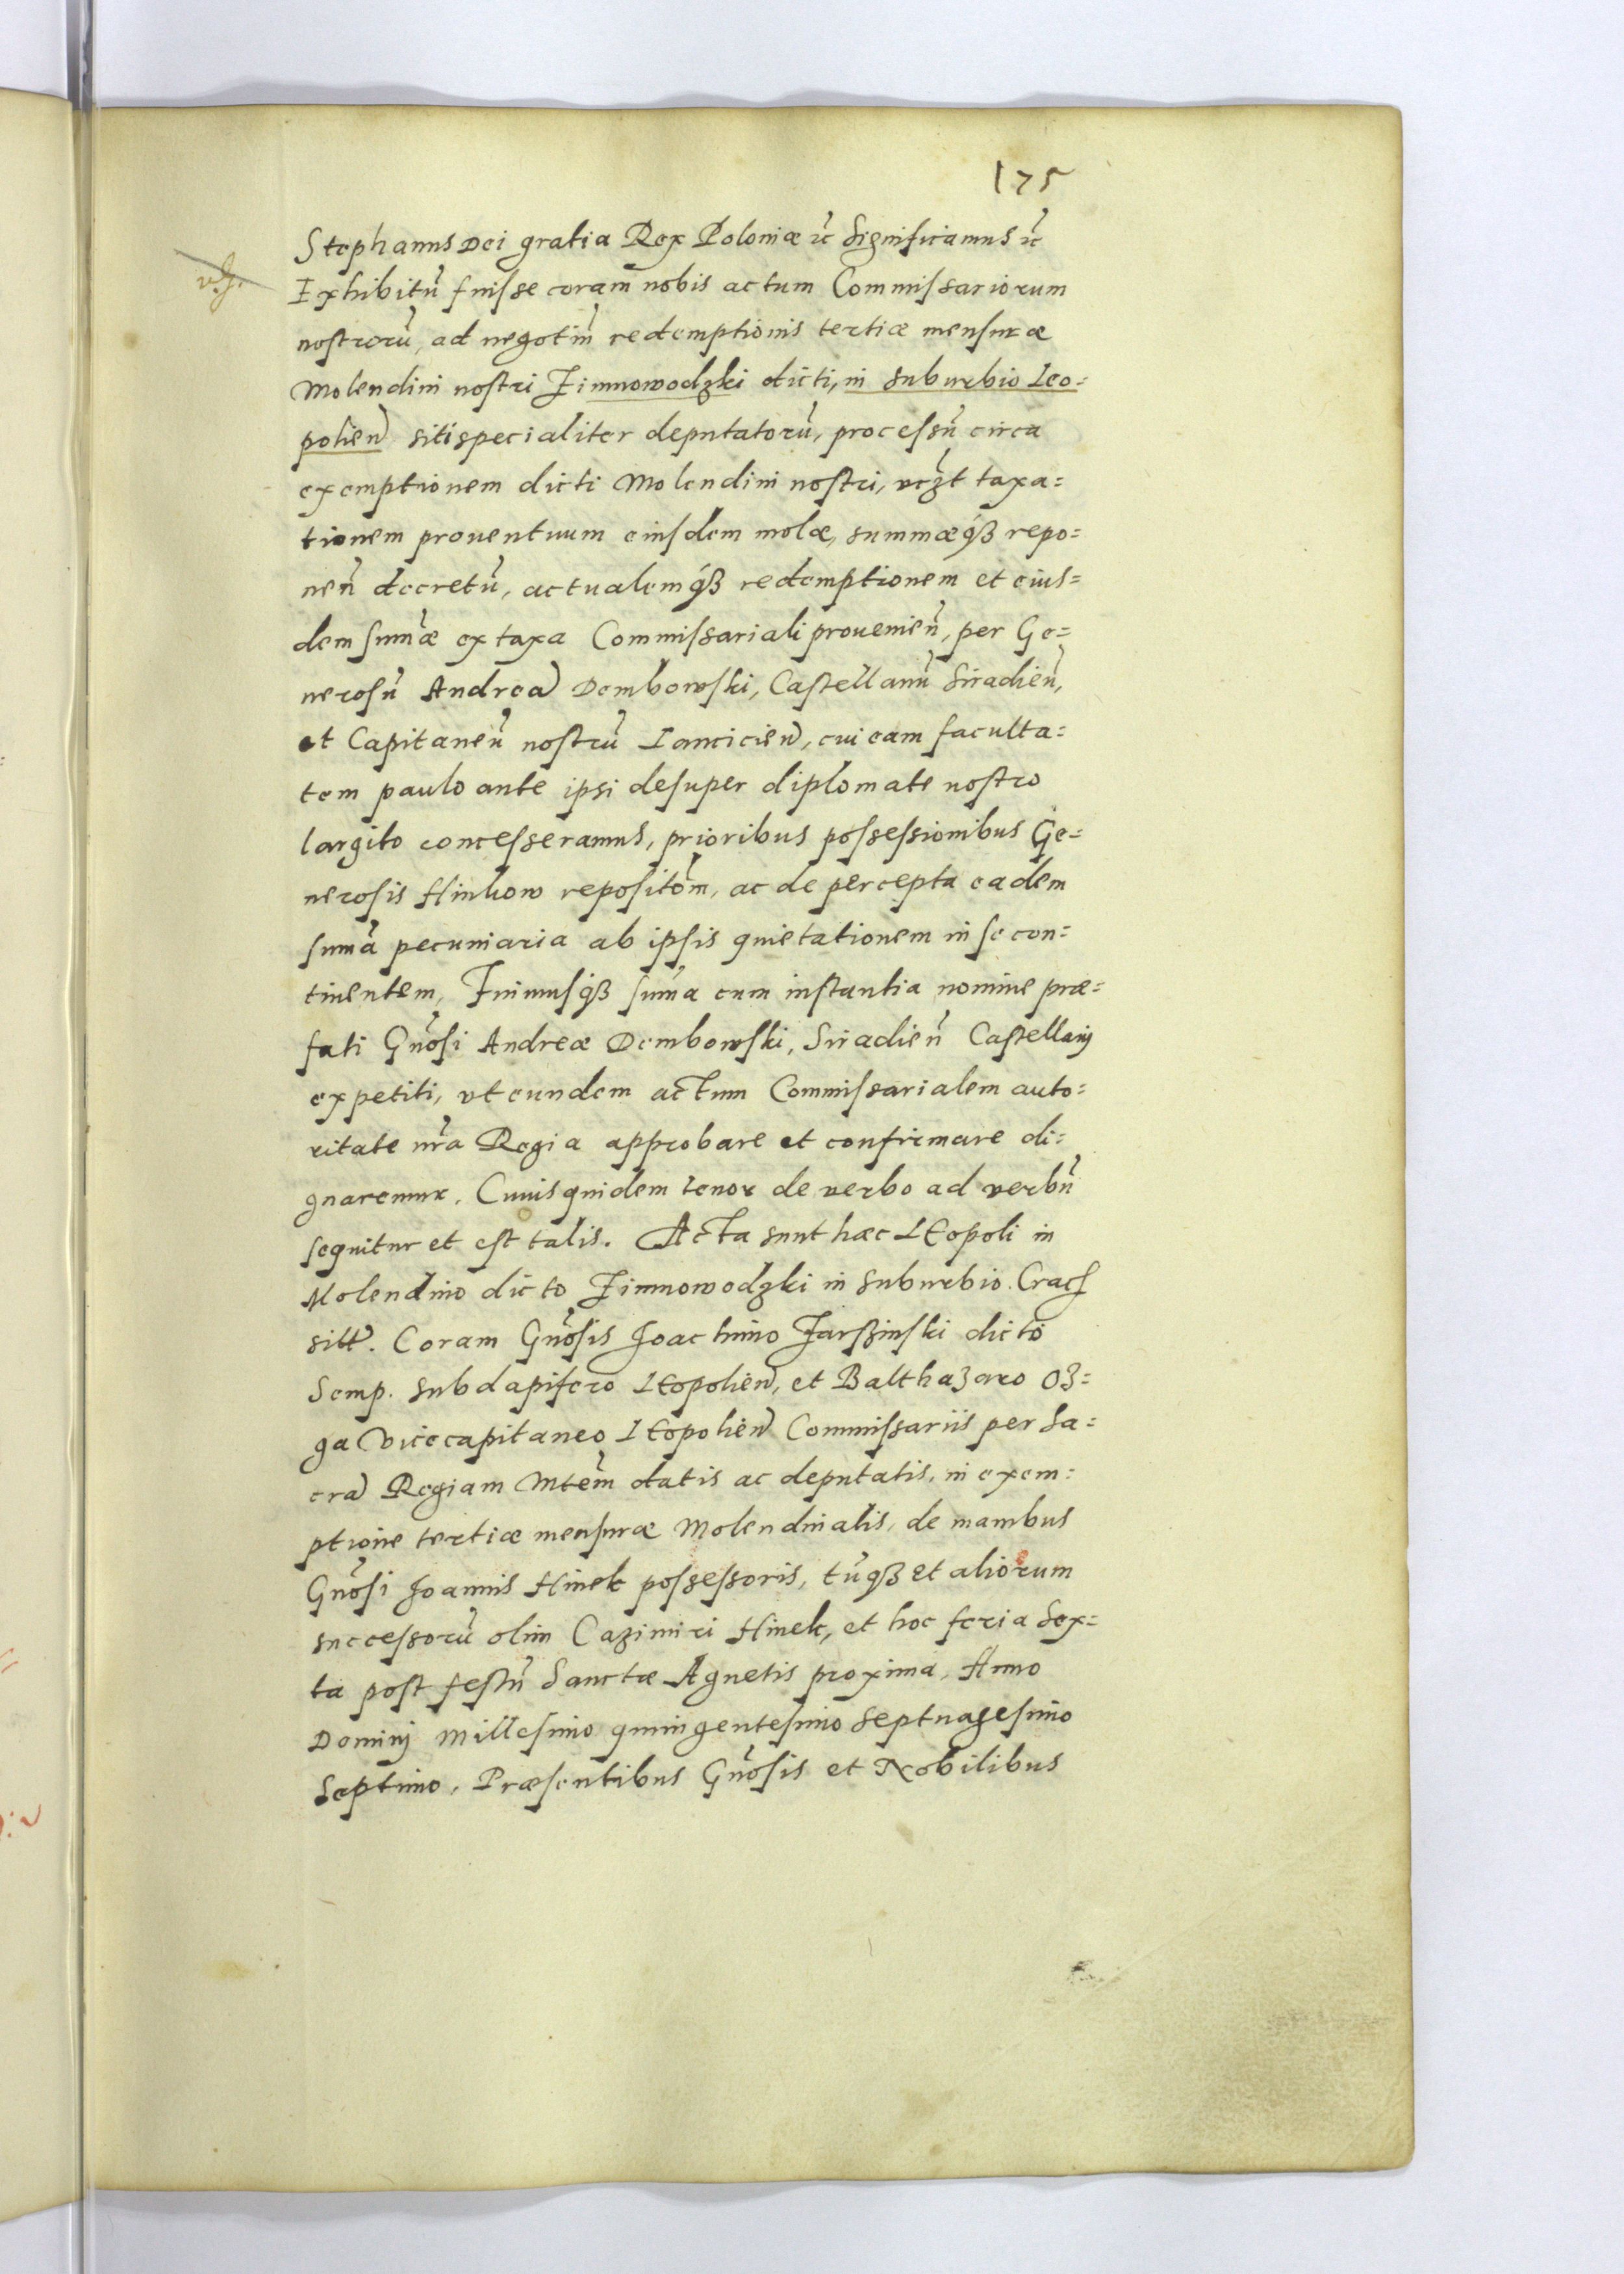 175
Stephanus Dei gratia Rex Poloniæ ꝛc Significamus ꝛc
Exhibitũ fuisse coram nobis actum Commissariorum
nostrorũ, ad negotiũ redemptionis tertiæ mensuræ
Molendini nostri Zimnowodzki dicti, in suburbio Leo=
polien̄ siti specialiter deputatorũ, processũ circa
exemptionem dicti Molendini nostri, vczt taxa=
tionem prouentuum eiusdem molæ, summæq́ꝫ repo=
nen̄ decretũ, actualemq́ꝫ redemptionem et eius=
dem sum̃æ ex taxa Commissariali prouenien̄, per Ge=
nerosũ Andreā Dembowski, Castellanũ Siradien̄,
et Capitaneũ nostrũ Lancicien̄, cui eam faculta=
tem paulo ante ipsi desuper diplomate nostro
largito concesseramus, prioribus possessionibus Ge=
nerosis Hinkow repositõm, ac de percepta eadem
sum̃a pecuniaria ab ipsis quietationem in se con=
tinentem, Fuimusq́ꝫ sum̃a cum instantia nomine præ=
fati Gñosi Andreæ Dembowski, Siradien̄ Castellanij
expetiti, vt eundem actum Commissarialem auto=
ritate nr̃a Regia approbare et confirmare di=
gnaremur. Cuius quidem tenor de verbo ad verbũ
sequitur et est talis. Acta sunt hæc Leopoli in
Molendino dicto Zimnowodzki in suburbio Crac̄
sitt. Coram Gñosis Joachimo Jarßinski dicto
Semp. subdapifero Leopolien̄, et Balthazaro Oz=
ga Vicecapitaneo Leopolien̄ Commissariis per Sa=
crā Regiam Mtem̃ datis ac deputatis, in exem=
ptione tertiæ mensuræ Molendinalis, de manibus
Gñosi Joannis Hinek possessoris, tũq́ꝫ et aliorum
successorũ olim Cazimiri Hinek, et hoc feria Sex=
ta post festũ Sanctæ Agnetis proxima, Anno
Dominj Millesimo quingentesimo Septuagesimo
Septimo, Præsentibus Gñosis et Nobilibus